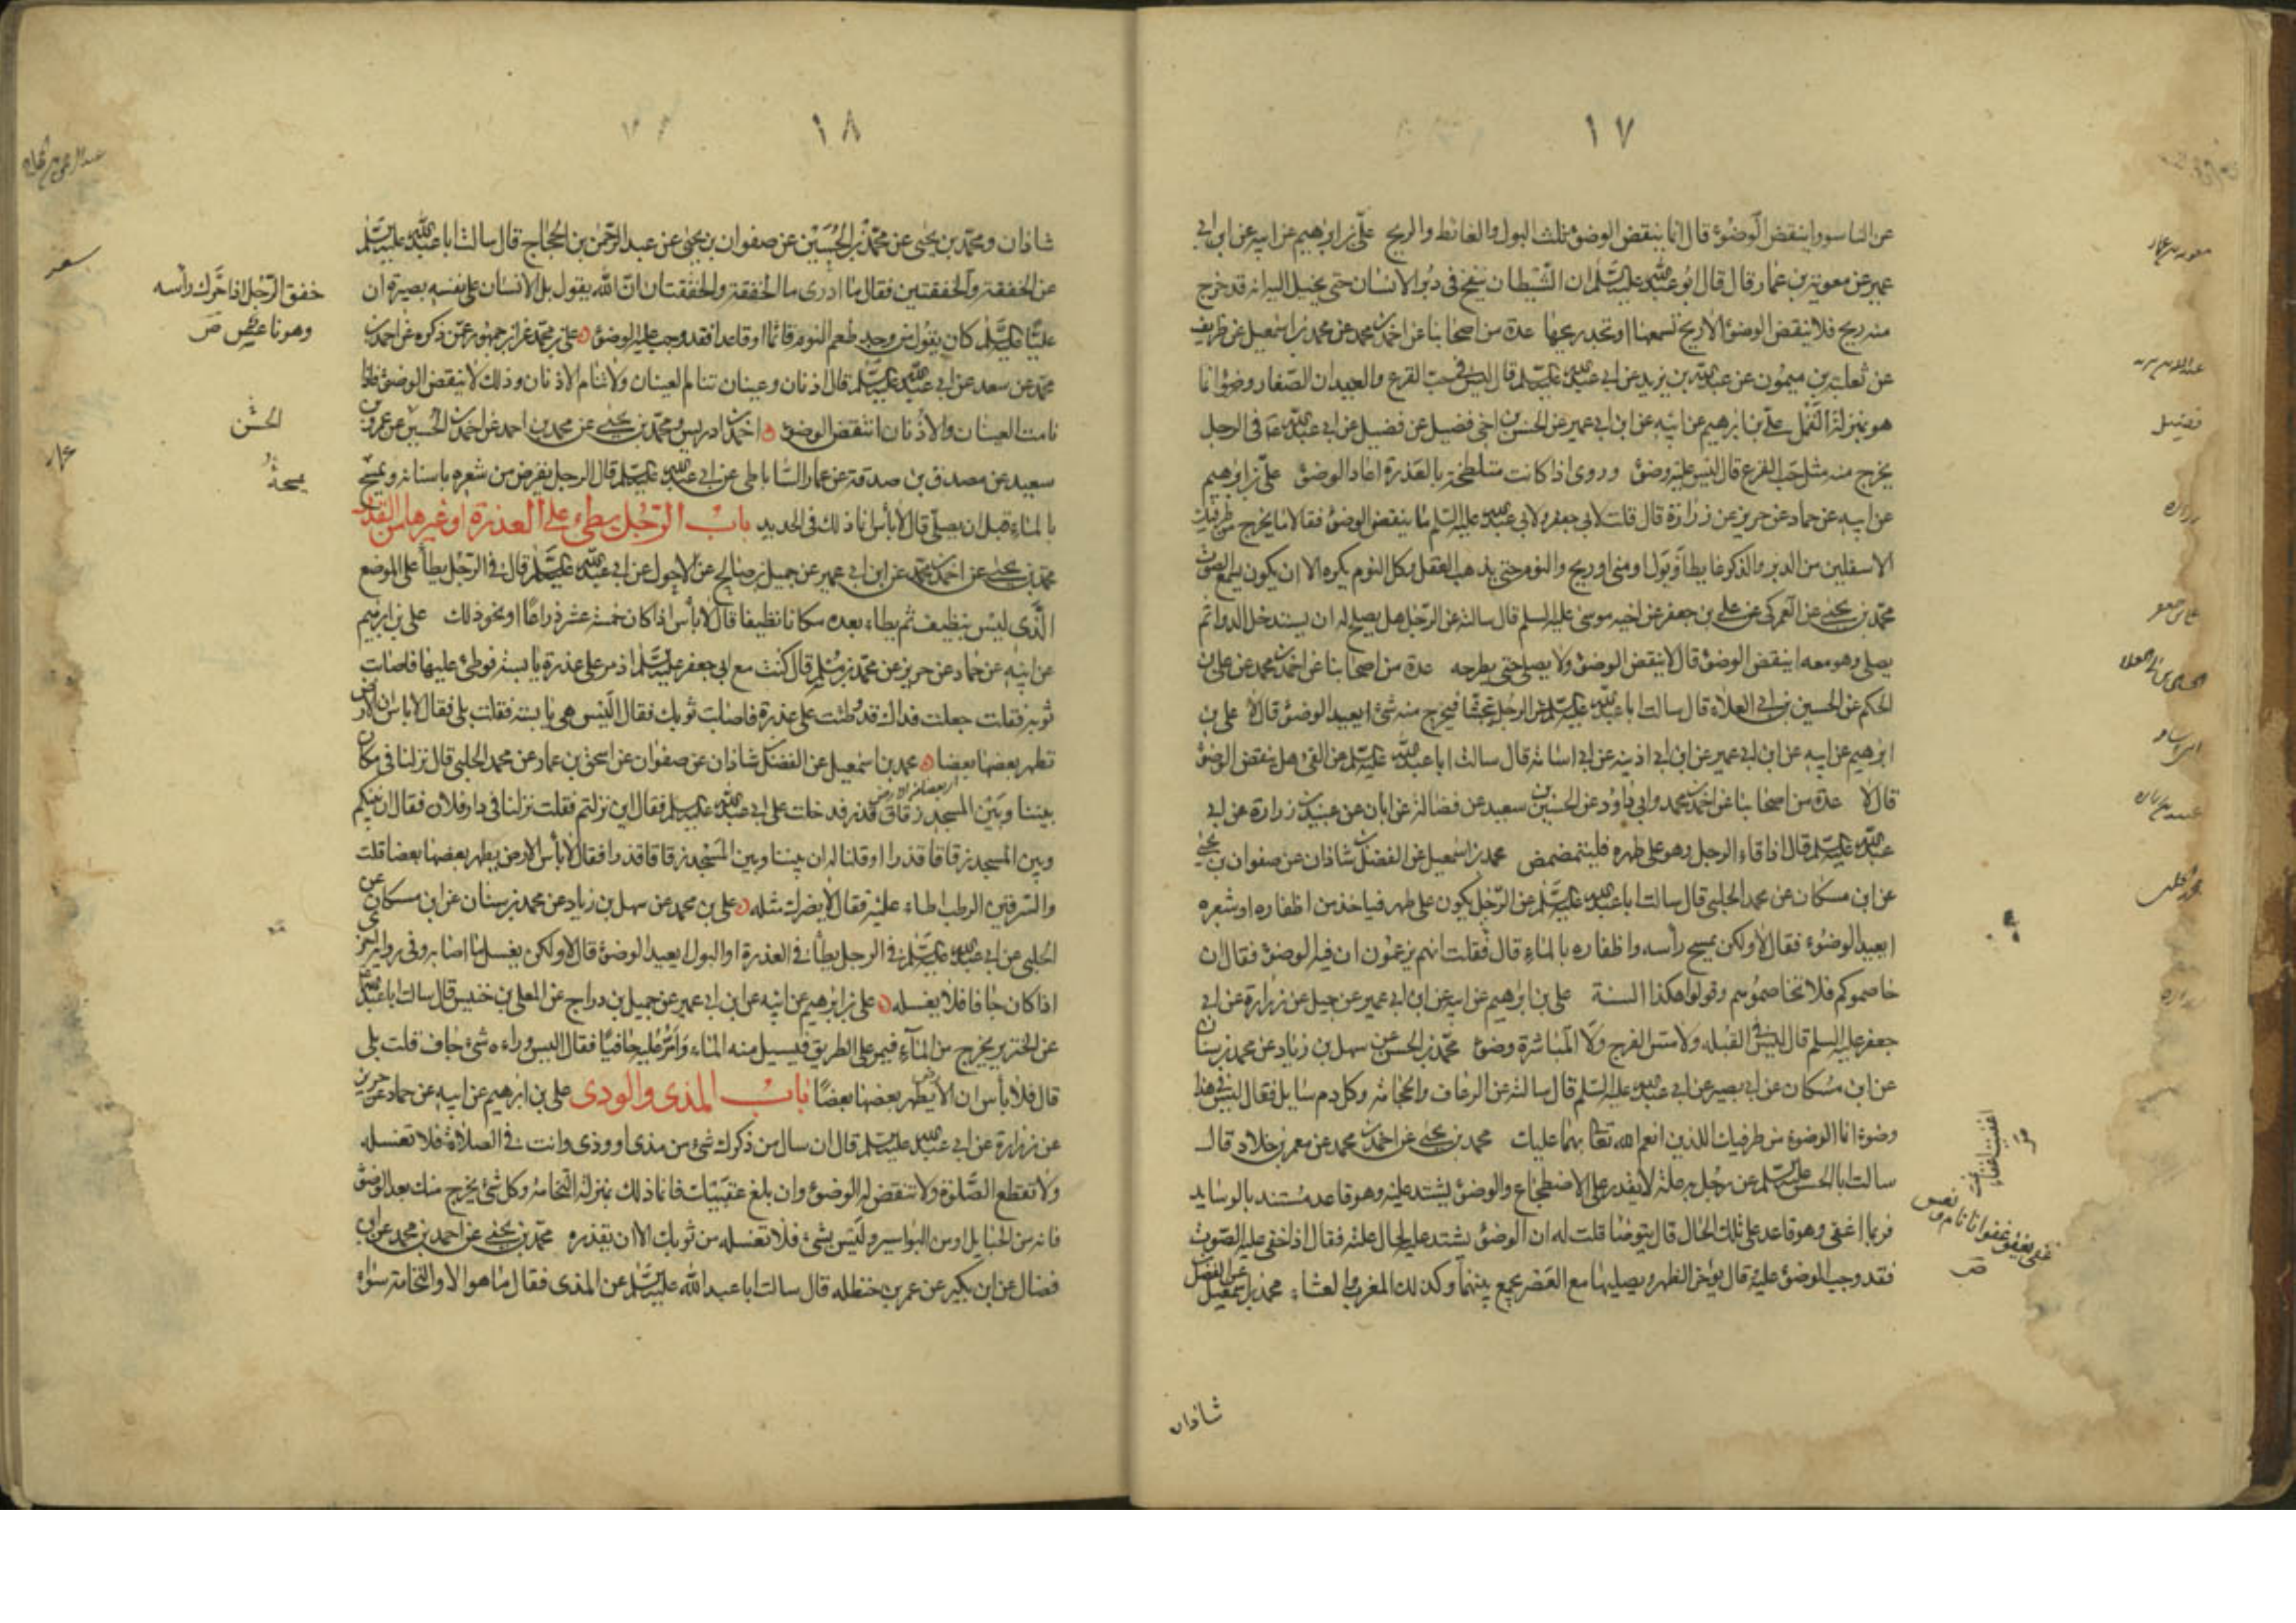 ١٧
عن الناسور اينقض الوضوء قال انما ينقض الوضوء ثلث البول والغائط والريح علي بن ابرهيم عن ابيه عن ابن ابي
عمير عن معوية بن عمار قال قال ابو عبد الله عليه السلم ان الشيطان ينفخ في دبر الانسان حتى يخيل اليه انه قد خرج
منه ريح فلا ينقض الوضوء الا ريح تسمعها او تجد ريحها عدة من اصحابنا عن احمد بن محمد عن محمد بن اسمعيل عن ظريف
عن ثعلبة بن ميمون عن عبد الله بن يزيد عن ابي عبد الله عليه السلم قال ليس في حب القرع والديدان الصغار وضوء انما
هو بمنزلة القمل علي بن ابرهيم عن ابيه عن ابن ابي عمير عن الحسن بن اخي فضيل عن فضيل عن ابي عبد الله ع في الرجل
يخرج منه مثل حب القرع قال ليس عليه وضوء وروى اذا كانت متلطخة بالعذرة اعاد الوضوء علي بن ابرهيم
عن ابيه عن حماد عن حريز عن زرارة قال قلت لابي جعفر ولابي عبد الله عليه السلم ما ينقض الوضوء فقالا ما يخرج من طرفيك
الاسفلين من الدبر والذكر غايط او بول او مني او ريح والنوم حتى يذهب العقل وكل النوم يكره الا ان يكون يسمع الصوت
محمد بن يحيى عن العمركي عن علي بن جعفر عن اخيه موسى عليه السلم قال سالته عن الرجل هل يصلح له ان يستدخل الدواء ثم
يصلي وهو معه اينقض الوضوء قال لا ينقض الوضوء ولا يصلي حتى يطرحه عدة من اصحابنا عن احمد بن محمد عن علي بن
الحكم عن الحسين بن ابي العلاء قال سالت ابا عبد الله عليه السلم عن الرجل يتجشا فيخرج منه شئ ايعيد الوضوء قال لا علي بن
ابرهيم عن ابيه عن ابن ابي عمير عن ابن اذينه عن ابي اسامة قال سالت ابا عبد الله عليه السلم عن القئ هل ينقض الوضوء
قال لا عدة من اصحابنا عن احمد بن محمد وابي داود عن الحسين بن سعيد عن فضالة عن ابان عن عبيد بن زرارة عن ابي
عبد الله عليه السلم قال اذا قاء الرجل وهو على طهره فليتمضمض محمد بن اسمعيل عن الفضل بن شاذان عن صفوان بن يحيى
عن ابن مسكان عن محمد الحلبي قال سالت ابا عبد الله عليه السلم عن الرجل يكون على طهر فياخذ من اظفاره او شعره
ايعيد الوضوء فقال لا ولكن يمسح رأسه واظفاره بالماء قال فقلت انهم يزعمون ان فيه الوضوء فقال ان
خاصموكم فلا تخاصموهم وقولوا هكذا السنة علي بن ابرهيم عن ابيه عن ابن ابي عمير عن جميل عن زرارة عن ابي
جعفر عليه السلم قال ليس في القبلة ولا مس الفرج ولا المباشرة وضوء محمد بن الحسن عن سهل بن زياد عن محمد بن سنان
عن ابن مسكان عن ابي بصير عن ابي عبد الله عليه السلم قال سالته عن الرعاف والحجامة وكل دم سايل فقال ليس في هذا
وضوء انما الوضوء من طرفيك اللذين انعم الله تعالى بهما عليك محمد بن يحيى عن احمد بن محمد عن معمر بن خلاد قال
سالت ابا الحسن عليه السلم عن رجل به علة لا يقدر على الاضطجاع والوضوء يشتد عليه وهو قاعد مستند بالوسايد
فربما اغفى وهو قاعد على تلك الحال قال يتوضا قلت له ان الوضوء يشتد عليه لحال علته فقال اذا خفى عليه الصوت
فقد وجب الوضوء عليه قال يؤخر الظهر ويصليها مع العصر يجمع بينهما وكذلك المغرب والعشاء محمد بن اسمعيل عن الفضل
شاذان
معوية بن عمار
فضيل
زرارة
علي بن جعفر
الحسين بن ابي العلا
محمد الحلبي
زرارة
١٨
شاذان ومحمد بن يحيى عن محمد بن الحسين عن صفوان بن يحيى عن عبد الرحمن بن الحجاج قال سالت ابا عبد الله عليه السلم
عن الخفقة والخفقتين فقال ما ادرى ما الخفقة والخفقتان ان الله يقول بل الانسان على نفسه بصيرة ان
عليا عليه السلم كان يقول من وجد طعم النوم قائما او قاعدا فقد وجب عليه الوضوء علي بن محمد عن ابن جمهور عمن ذكره عن احمد بن
محمد عن سعد عن ابي عبد الله عليه السلم قال اذنان وعينان تنام العينان ولا تنام الاذنان وذلك لا ينقض الوضوء فاذا
نامت العينان والاذنان انتقض الوضوء احمد بن ادريس ومحمد بن يحيى عن محمد بن احمد عن احمد بن الحسين عن عمرو بن
سعيد عن مصدق بن صدقة عن عمار الساباطي عن ابي عبد الله عليه السلم قال الرجل يقرض من شعره باسنانه ويمسح
بالماء قبل ان يصلي قال لا بأس انما ذلك في الحديد باب الرجل يطئ على العذرة او غيرها من القذر
محمد بن يحيى عن احمد بن محمد عن ابن ابي عمير عن جميل بن صالح عن الاحول عن ابي عبد الله عليه السلم قال في الرجل يطأ على الموضع
الذي ليس بنظيف ثم يطاء بعده مكانا نظيفا قال لا بأس اذا كان خمسة عشر ذراعا او نحو ذلك علي بن ابرهيم
عن ابيه عن حماد عن حريز عن محمد بن مسلم قال كنت مع ابي جعفر عليه السلم اذ مر على عذرة يابسة فوطئ عليها فاصابت
ثوبه فقلت جعلت فداك قد وطئت على عذرة فاصابت ثوبك فقال اليس هي يابسة فقلت بلى فقال لا باس ان الارض
تطهر بعضها بعضا محمد بن اسمعيل عن الفضل بن شاذان عن صفوان عن اسحق بن عمار عن محمد الحلبي قال نزلنا في مكان
بيننا وبين المسجد زقاق قذر فدخلت على ابي عبد الله عليه السلم فقال اين نزلتم فقلت نزلنا في دار فلان فقال ان بينكم
وبين المسجد زقاقا قذرا او قلنا له ان بيننا وبين المسجد زقاقا قذرا فقال لا بأس الارض يطهر بعضها بعضا قلت
والسرقين الرطب اطاء عليه فقال لا يضرك مثله علي بن محمد عن سهل بن زياد عن محمد بن سنان عن ابن مسكان عن
الحلبي عن ابي عبد الله عليه السلم في الرجل يطأ في العذرة او البول ايعيد الوضوء قال لا ولكن يغسل ما اصابه وفي رواية اخرى
اذا كان جافا فلا يغسله علي بن ابرهيم عن ابيه عن ابن ابي عمير عن جميل بن دراج عن المعلى بن خنيس قال سالت ابا عبد الله
عن الخنزير يخرج من الماء فيمر على الطريق فيسيل منه الماء وامر عليه حافيا فقال اليس وراءه شئ جاف قلت بلى
قال فلا بأس ان الارض يطهر بعضها بعضا باب المذى والودى علي بن ابرهيم عن ابيه عن حماد عن حريز
عن زرارة عن ابي عبد الله عليه السلم قال ان سال من ذكرك شئ من مذى او وذى وانت في الصلاة فلا تغسله
ولا تقطع الصلوة ولا تنقض له الوضوء وان بلغ عقبيك فانما ذلك بمنزلة النخامة وكل شئ يخرج منك بعد الوضوء
فانه من الحبايل او من البواسير وليس بشئ فلا تغسله من ثوبك الا ان تقذره محمد بن يحيى عن احمد بن محمد عن ابن
فضال عن ابن بكير عن عمر بن حنظله قال سالت ابا عبد الله عليه السلم عن المذى فقال ما هو الا والنخامة سواء
خفق الرجل اذا حرك رأسه
وهو ناعس ص
الحسن
يمسحه
سعد
عمار